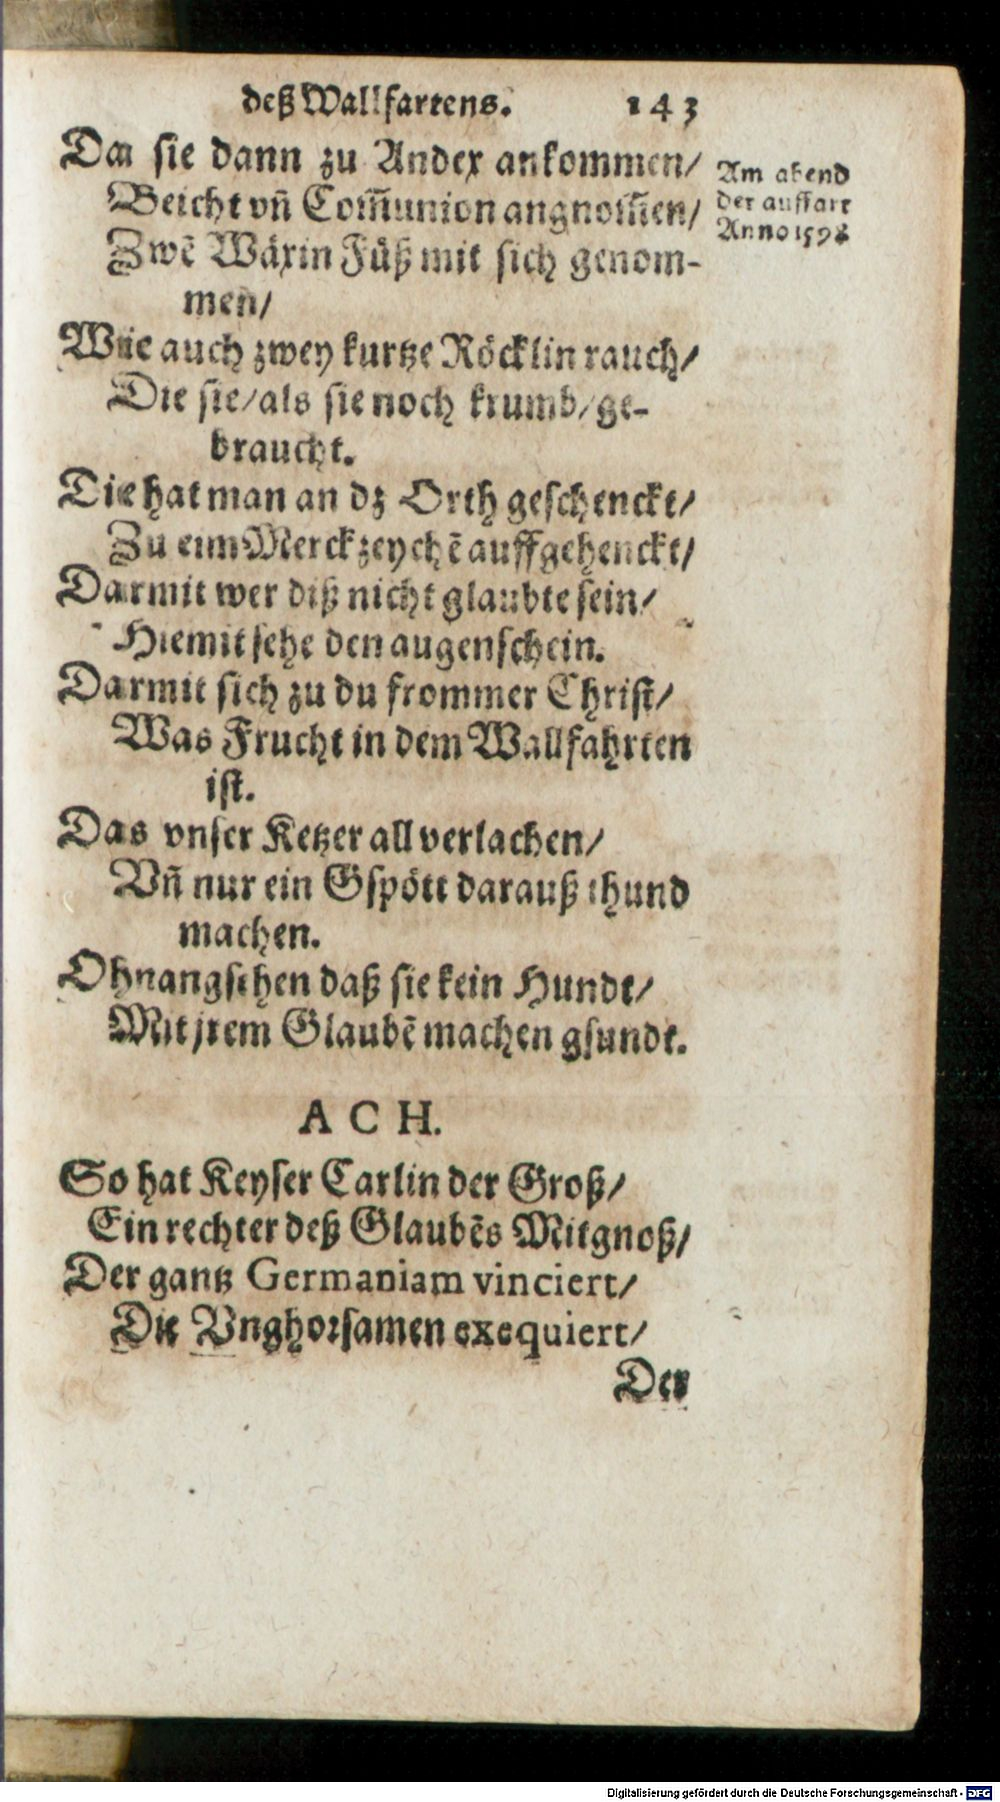 deß Wallfartens. 143
Da sie dann zu Andex ankommen/
Beicht vñ Com̃union angnom̃en/
Zwē Wäxin Füß mit sich genom-
men/
Wie auch zwey kurtze Röcklin rauch/
Die sie/als sie noch krumb/ge-
braucht.
Die hat man an dz Orth geschenckt/
Zu eim Merckzeychē auffgehenckt/
Darmit wer diß nicht glaubte sein/
Hiemit sehe den augenschein.
Darmit sich zu du frommer Christ/
Was Frucht in dem Wallfahrten
ist.
Das vnser Ketzer all verlachen/
Vñ nur ein Gspött darauß thund
machen.
Ohnangsehen daß sie kein Hundt/
Mit jrem Glaubē machen gsundt.
Am abend
der auffart
Anno
ACH.
So hat Keyser Carlin der Groß/
Ein rechter deß Glaubēs Mitgnoß/
Der gantz Germaniam vinciert/
Die Vnghorsamen exequiert/
Der
Digitalisierung gefördert durch die Deutsche Forschungsgemeinschaft - DFG